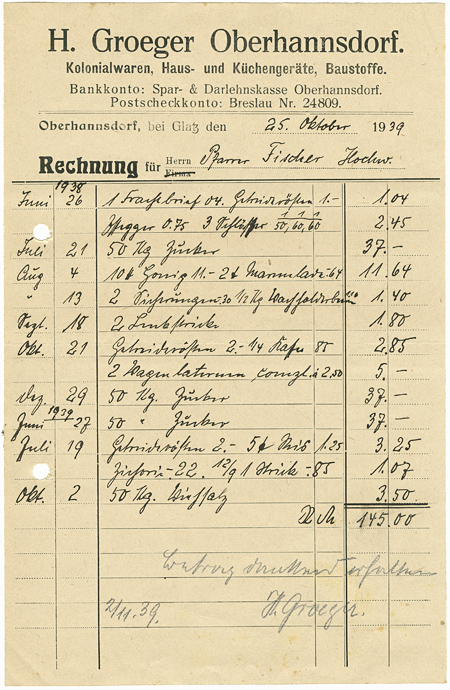 H. Groeger Oberhannsdorf.
Kolonialwaren, Haus- und Küchengeräte, Baustoffe.
Bankkonto: Spar- & Darlehnskasse Oberhannsdorf.
Postscheckkonto: Breslau Nr. 24809.
Oberhannsdorf, bei Glatz den 25. Oktober 1939
Rechnung für Herrn Firma Pfarrer Fischer Hochw.
1938
Juni 26 1 Frachtbrief 04. Getreiderösten 1.- 1.04
0.75 3 50, 60, 60 2.45
Juli 21 50 Kg Zucker 37.-
Aug 4 10 ℔ Honig 11.- 2 ℔ Marmelade .64 11.64
" 13 2 Sicherungen .30 1/2 Kg Wachholderbeeren 1.40
Sept. 18 2 Senkstricke 1.80
Okt. 21 Getreiderösten 2.- 1/4 Kafee 85 2.85
2 Wagenlaternen compl. á 2.50 5.-
Dez. 29 50 Kg. Zucker 37.-
1939
Juni 27 50 " Zucker 37.-
Juli 19 Getreiderösten 2.- 5 ℔ Reis 1.25 3.25
Zichorie -22. 1 Strick -.85 1.07
Okt. 2 50 Kg. Viehsalz 3.50
RM 145.00
Betrag dankend erhalten
2/11.39. H. Groeger.